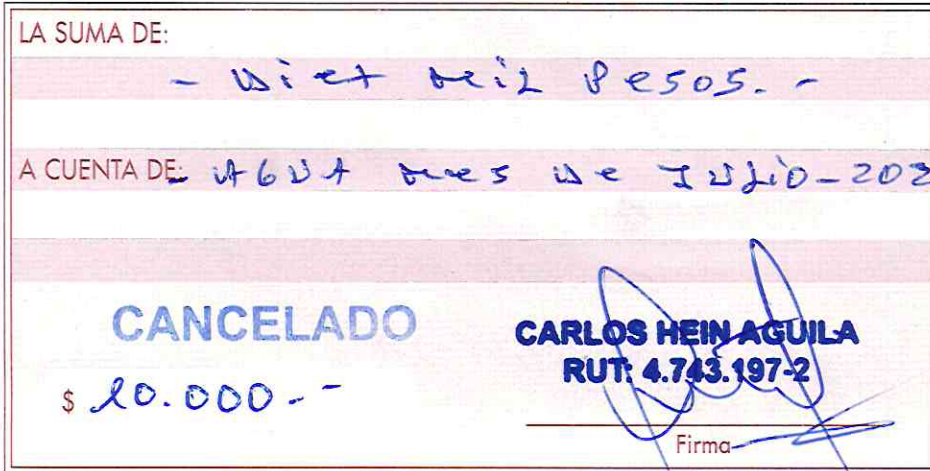 LA SUMA DE:
- Diez mil Pesos. -
A CUENTA DE: - AGUA mes de JULIO - 202
CANCELADO
CARLOS HEIN AGUILA
RUT: 4.743.197-2
$ 10.000.-
Firma